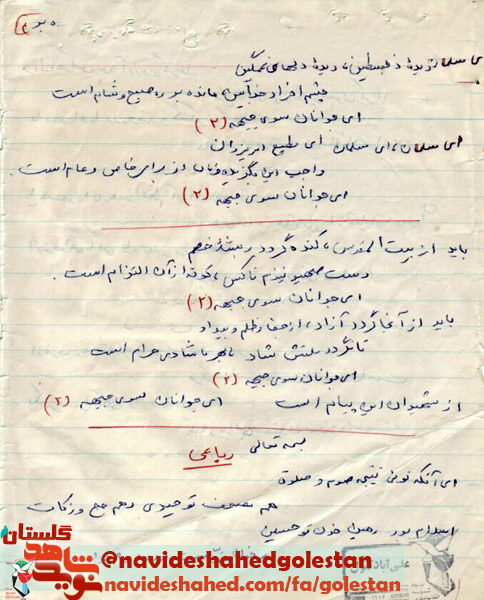 ای مسلمان دیدهٔ فلسطین، دیدهٔ دلهای غمگین
چشم افراد خدا آیین، مانده بر ره صبح و شام است
ای جوانان سوی جبهه (۲)
ای مسلمان، ای مسلمان ای مطیع امر یزدان
واجب این برگزیده از برای خاص و عام است.
ای جوانان سوی جبهه (۲)
باید از بیت المقدس، کنده گردد ریشهٔ خصم
دست صهیونیزم ناکس، کوته از آن التزام است.
ای جوانان سوی جبهه (۲)
باید از آنجا گردد آزاد، از جفا و ظلم و بیداد
تا نگردد ملتش شاد بهر ما شادی حرام است
ای جوانان سوی جبهه (۲)
از شهیدان این پیام است ای جوانان سوی جبهه (۲)
بسمه تعالی
رباعی
ای آنکه توئی نتیجه صوم و صلوة
هم توحیدی و هم حج و زکات
اسلام بود خون تو حسین
نوید شاهد گلستان
@navideshahedgolestan
navideshahed.com/fa/golestan
علی آباد